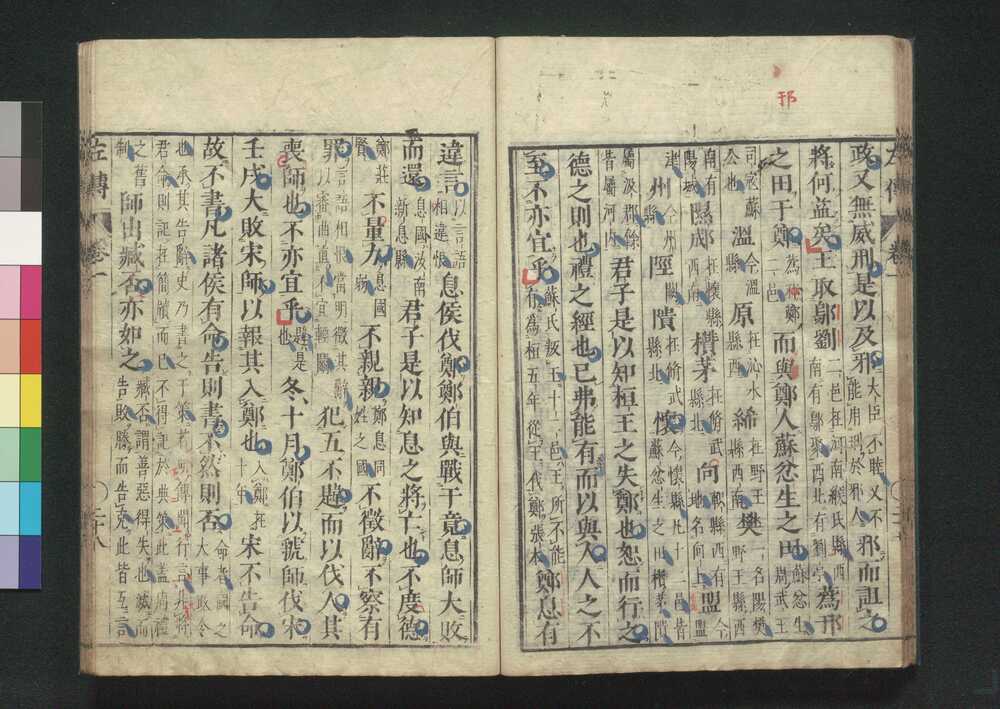 邘
左傳 卷一
政又無威刑是以及邪大臣不睦又不能用刑於邪人邪而詛之
將何益矣王取鄔劉二邑在河南緱氏縣西南有鄔聚西北有劉亭蒍邘
之田于鄭蒍邘二邑而與鄭人蘇忿生之田蘇忿生周武王
司寇蘇公也溫今溫縣原在沁水縣西絺在野王縣西南樊一名陽樊野王縣西
南有陽城隰郕在懷縣西南欑茅在脩武縣北向軹縣西有地名向上盟今盟
津州今州縣陘闕隤在脩武縣北懷今懷縣凡十二邑皆蘇忿生之田欑茅隤
屬汲郡餘皆屬河內君子是以知桓王之失鄭也恕而行之
德之則也禮之經也已弗能有而以與人人之不
至不亦宜乎蘇氏叛王十二邑王所不能有為桓五年從王伐鄭張本鄭息有
違言以言語相違恨息侯伐鄭鄭伯與戰于竟息師大敗
而還息國汝南新息縣君子是以知息之將亡也不度德
鄭莊賢不量力息國弱不親親鄭息同姓之國不徵辭不察有
罪言語相恨當明徵其辭以審曲直不宜輕鬬犯五不韙而以伐人其
喪師也不亦宜乎韙是也冬十月鄭伯以虢師伐宋
壬戌大敗宋師以報其入鄭也入鄭在十年宋不告命
故不書凡諸侯有命告則書不然則否命者國之大事政令
也承其告辭史乃書之于策若所傳聞行言非將君命則記在簡牘而已不得記於典策此蓋周禮
之舊制師出臧否亦如之臧否謂善惡得失也滅而告敗勝而告克此皆互言
左傳 卷一 二十八